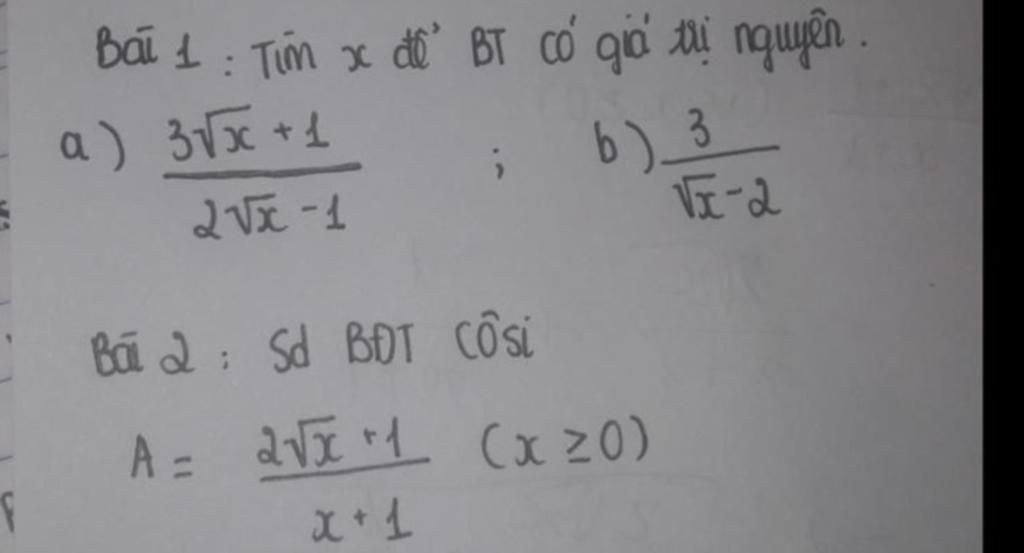 Bài 1 : Tìm x để BT có giá trị nguyên.
a) (3√x + 1)/(2√x - 1) ; b) 3/(√x - 2)
Bài 2 : Sd BĐT CÔSi
A = (2√x + 1)/(x + 1) (x ≥ 0)